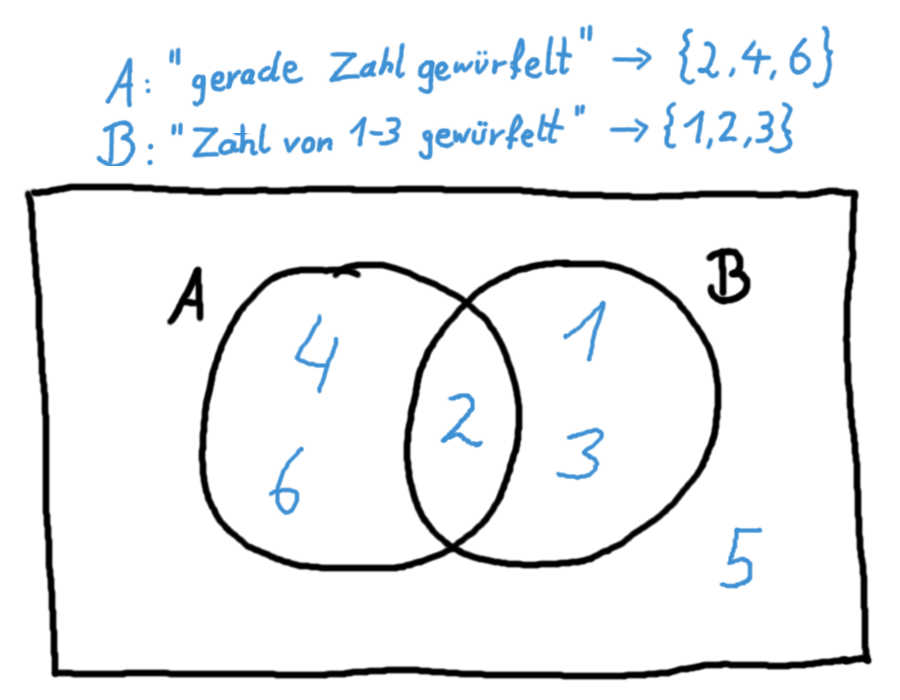 A: "gerade Zahl gewürfelt" → {2,4,6}
B: "Zahl von 1-3 gewürfelt" → {1,2,3}
A B
4 1
2
6 3
5